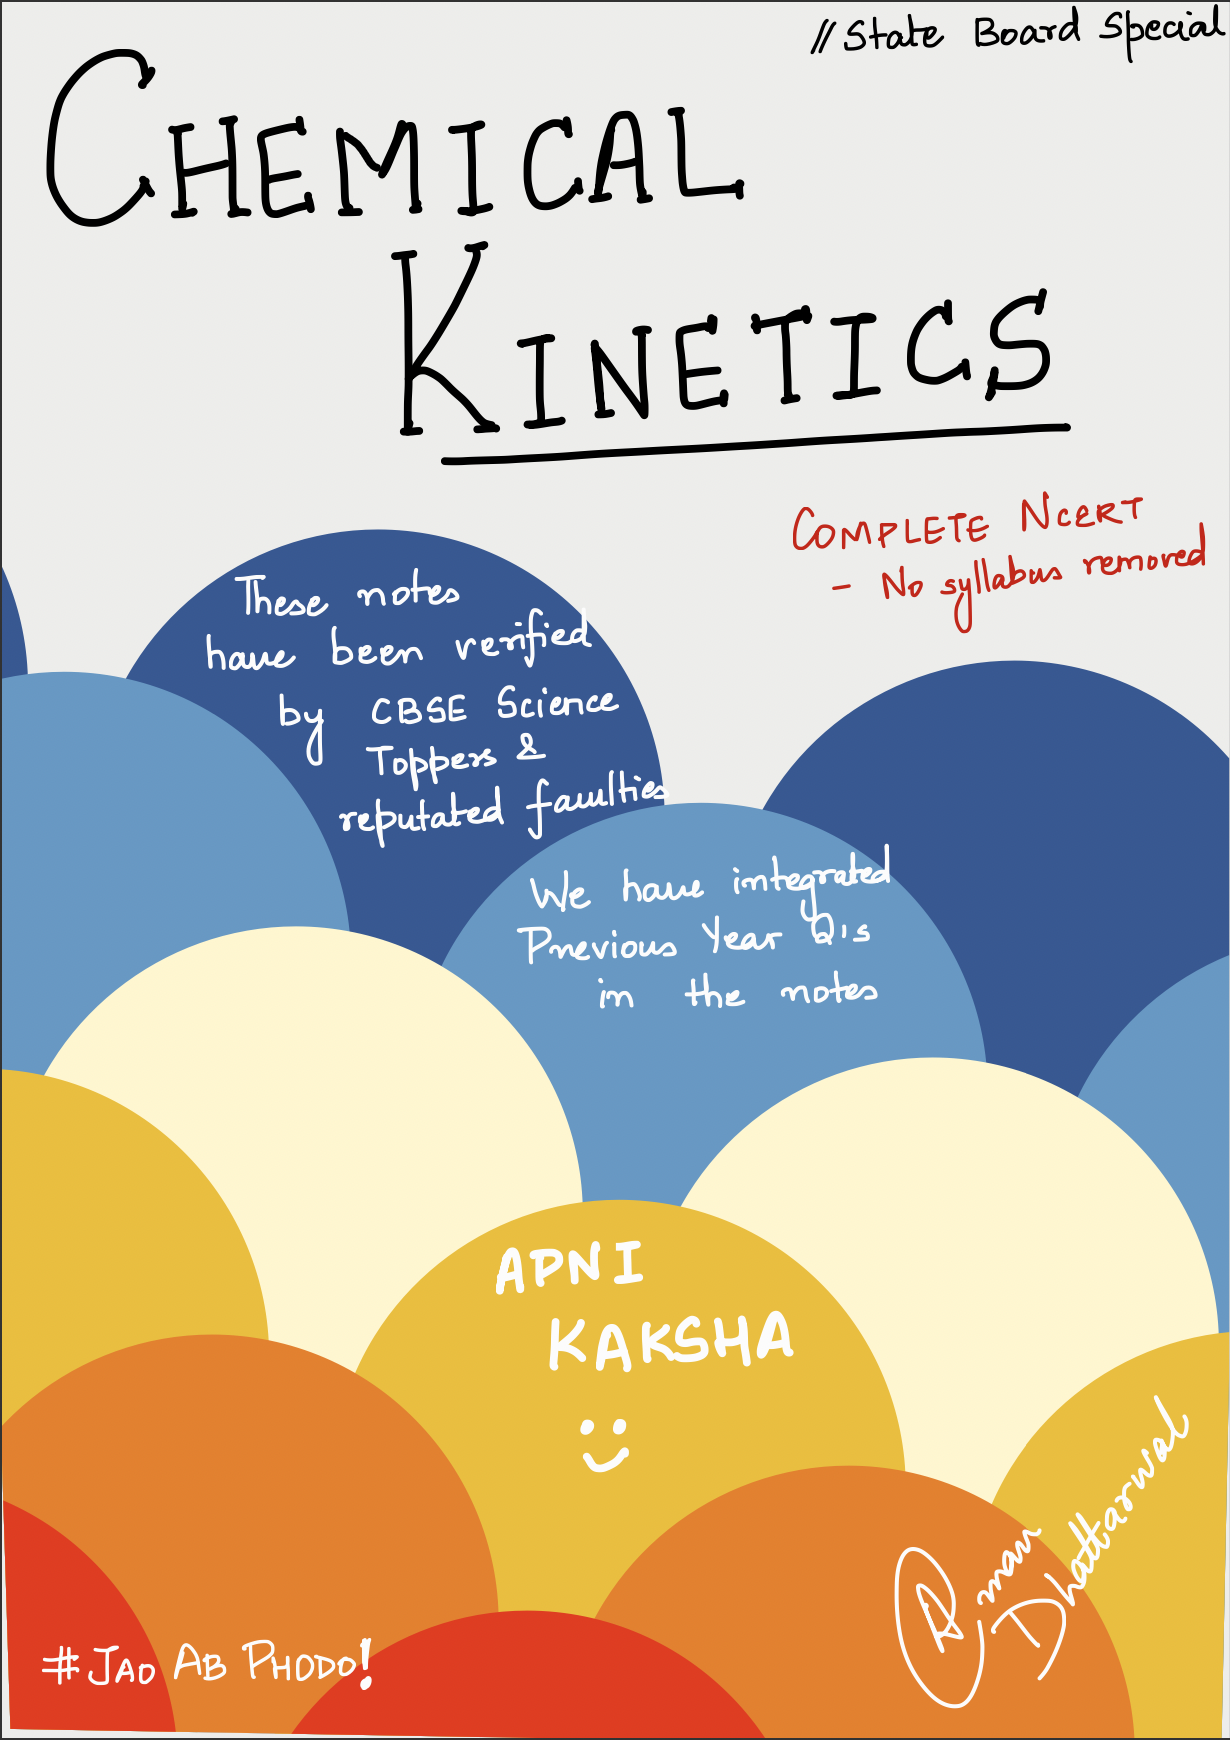 // State Board Special
CHEMICAL
KINETICS
COMPLETE NCERT
- No syllabus removed
These notes
have been verified
by CBSE Science
Toppers &
reputated faculties
We have integrated
Previous Year Q's
in the notes
APNI
KAKSHA
Aman
Dhattarwal
#JAO AB PHODO!